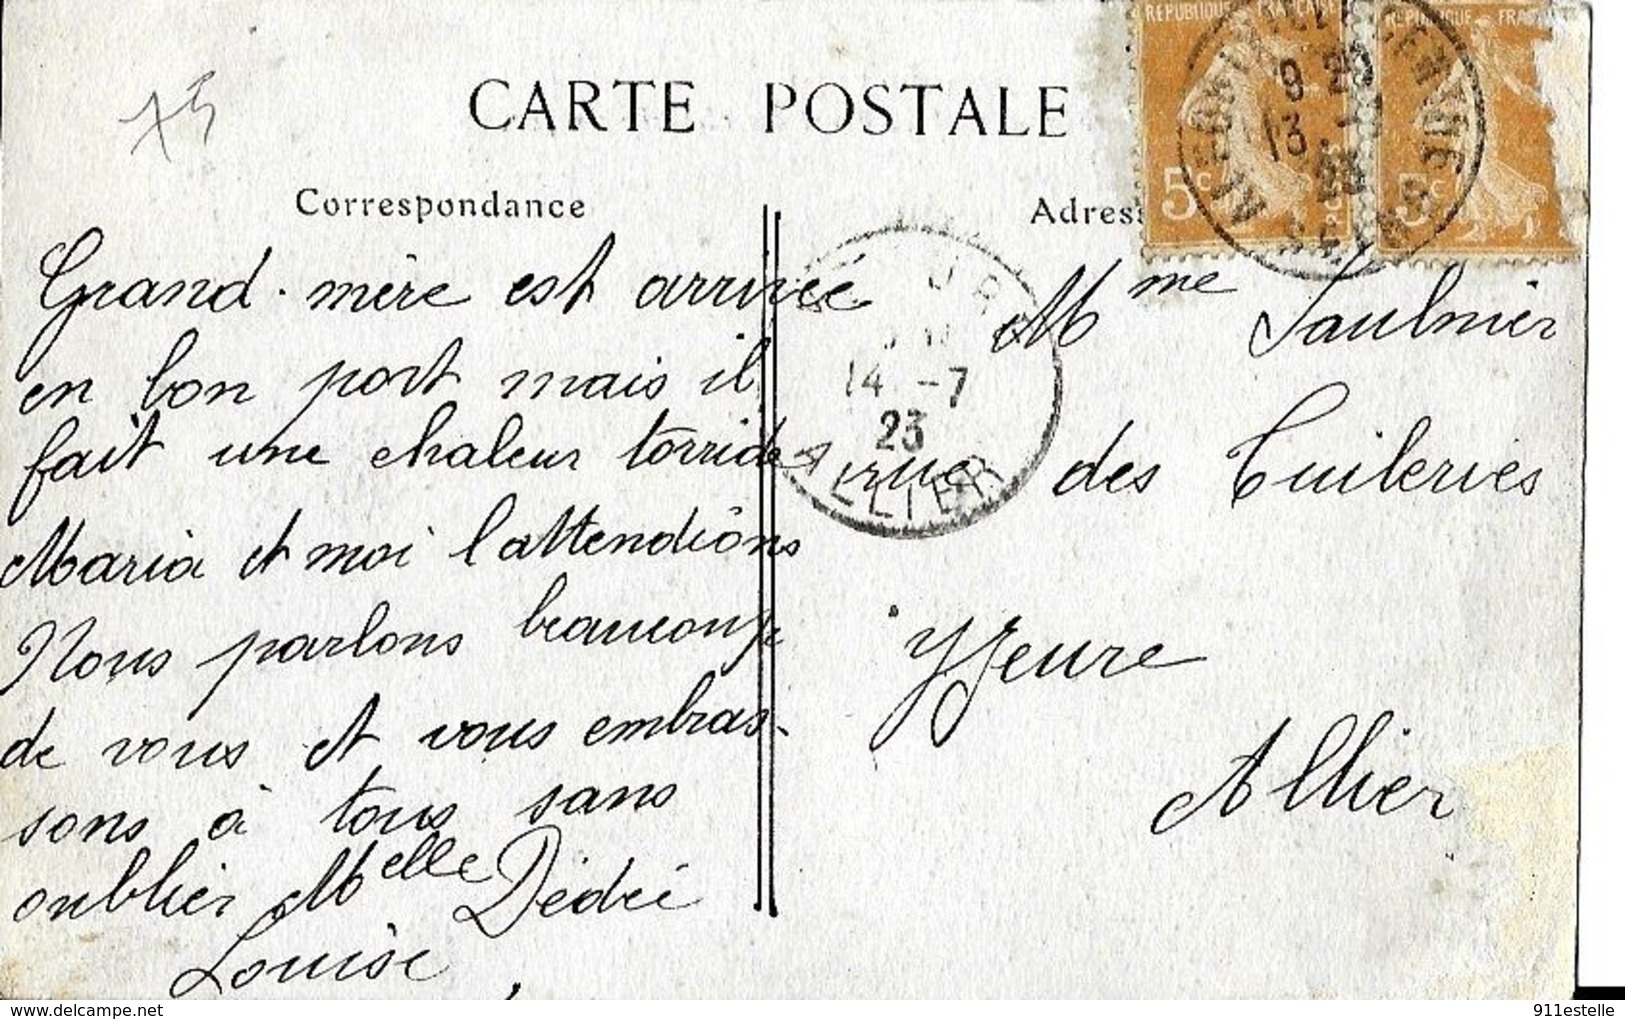 75
CARTE POSTALE
Correspondance
Adress
RÉPUBLIQUE FRANÇAISE
5c
5c
9 20
13
23
14 -7
23
ALLIER
Grand-mère est arrivée
en bon port mais il
fait une chaleur torride
Maria et moi l'attendions
Nous parlons beaucoup
de vous et vous embras-
sons à tous sans
oublier Melle Dédée
Louise
Mme Saulnier
rue des Tuileries
Yzeure
Allier
911estelle